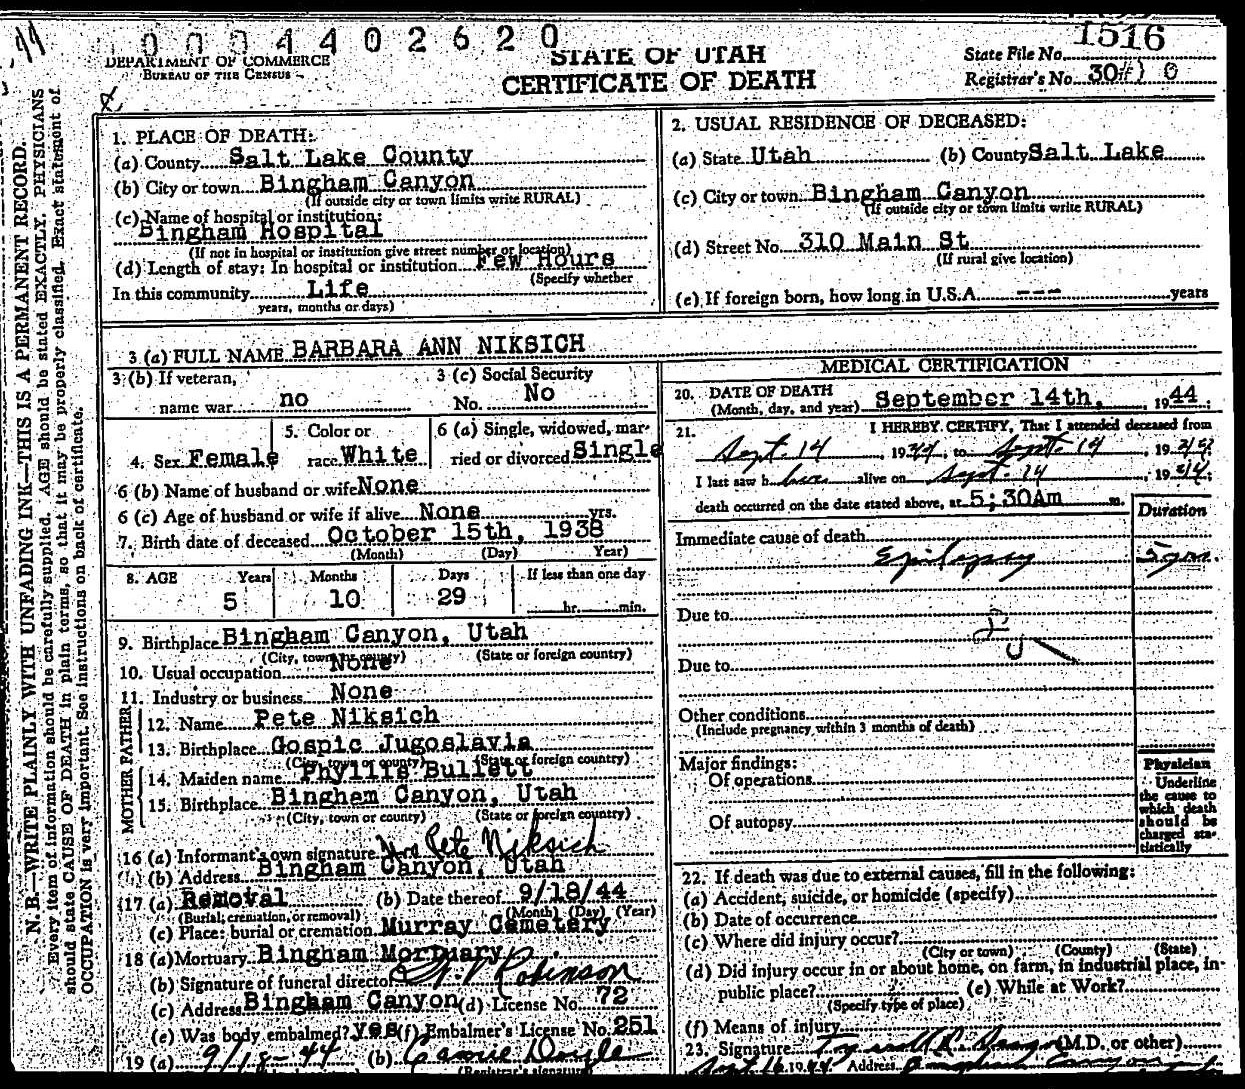 0004402620
DEPARTMENT OF COMMERCE
BUREAU OF THE CENSUS
STATE OF UTAH
CERTIFICATE OF DEATH
State File No. 1516
Registrar's No. 30
N. B.—WRITE PLAINLY WITH UNFADING INK—THIS IS A PERMANENT RECORD.
Every item of information should be carefully supplied. AGE should be stated EXACTLY. PHYSICIANS
should state CAUSE OF DEATH in plain terms, so that it may be properly classified. Exact statement of
OCCUPATION is very important. See instructions on back of certificate.
1. PLACE OF DEATH:
(a) County Salt Lake County
(b) City or town Bingham Canyon
(If outside city or town limits write RURAL)
(c) Name of hospital or institution:
Bingham Hospital
(If not in hospital or institution give street number or location)
(d) Length of stay: In hospital or institution Few Hours
(Specify whether
In this community Life
years, months or days)
2. USUAL RESIDENCE OF DECEASED:
(a) State Utah (b) County Salt Lake
(c) City or town Bingham Canyon
(If outside city or town limits write RURAL)
(d) Street No. 310 Main St
(If rural give location)
(e) If foreign born, how long in U.S.A. --- years
3 (a) FULL NAME BARBARA ANN NIKSICH
3 (b) If veteran,
name war no
3 (c) Social Security
No. No
4. Sex Female
5. Color or
race White
6 (a) Single, widowed, mar-
ried or divorced Single
6 (b) Name of husband or wife None
6 (c) Age of husband or wife if alive None yrs.
7. Birth date of deceased October 15th, 1938
(Month) (Day) Year)
8. AGE Years Months Days If less than one day
5 10 29 hr. min.
9. Birthplace Bingham Canyon, Utah
(City, town or county) (State or foreign country)
10. Usual occupation None
11. Industry or business None
FATHER
12. Name Pete Niksich
13. Birthplace Gospic Jugoslavia
(City, town or county) (State or foreign country)
MOTHER
14. Maiden name Phyllis Bullett
15. Birthplace Bingham Canyon, Utah
(City, town or county) (State or foreign country)
16 (a) Informant's own signature Mrs Pete Niksich
(b) Address Bingham Canyon, Utah
17 (a) Removal (b) Date thereof 9/18/44
(Burial, cremation, or removal) (Month) (Day) (Year)
(c) Place: burial or cremation Murray Cemetery
18 (a) Mortuary Bingham Mortuary
(b) Signature of funeral director Robinson
(c) Address Bingham Canyon (d) License No. 72
(e) Was body embalmed? yes (f) Embalmer's License No. 251
19 (a) 9/18-44 (b)
(Registrar's signature)
MEDICAL CERTIFICATION
20. DATE OF DEATH
(Month, day, and year) September 14th, 1944
21. I HEREBY CERTIFY, That I attended deceased from
Sept. 14, 1944, to Sept. 14, 1944
I last saw her alive on Sept. 14, 1944
death occurred on the date stated above, at 5;30Am m.
Duration
Immediate cause of death
Epilepsy 5 yrs.
Due to
Due to
Other conditions
(Include pregnancy within 3 months of death)
Major findings:
Of operations
Of autopsy
Physician
Underline
the cause to
which death
should be
charged sta-
tistically
22. If death was due to external causes, fill in the following:
(a) Accident, suicide, or homicide (specify)
(b) Date of occurrence
(c) Where did injury occur?
(City or town) (County) (State)
(d) Did injury occur in or about home, on farm, in industrial place, in-
public place? (e) While at Work?
(Specify type of place)
(f) Means of injury
23. Signature (M.D. or other)
Sept 16, 1944 Address Bingham Canyon